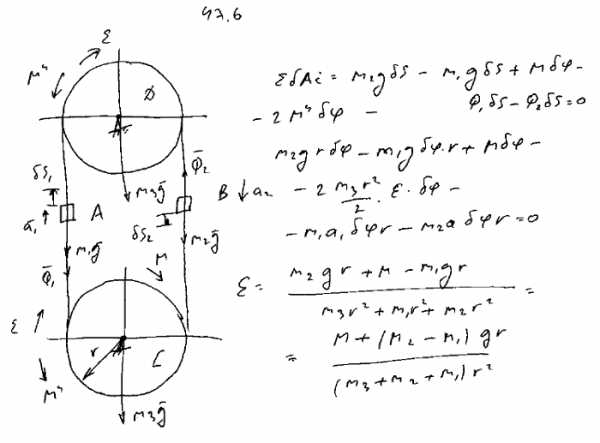 47.6
ε
Mᵘ
D
A
δS₁
Φ̄₂
m₃ḡ
B ↓ a₂
ā₁
A
δS₂
m₁ḡ
m₂ḡ
Φ̄₁
M
ε
r
C
Mᵘ
m₃ḡ
ΣδAi = m₂gδS − m₁gδS + Mδφ −
− 2Mᵘδφ − Φ₁δS − Φ₂δS = 0
m₂grδφ − m₁gδφ·r + Mδφ −
− 2 m₃r²/2 · ε · δφ −
− m₁a₁δφr − m₂aδφr = 0
ε = (m₂gr + M − m₁gr)/(m₃r² + m₁r² + m₂r²) =
= (M + (m₂ − m₁)gr)/((m₃ + m₂ + m₁)r²)